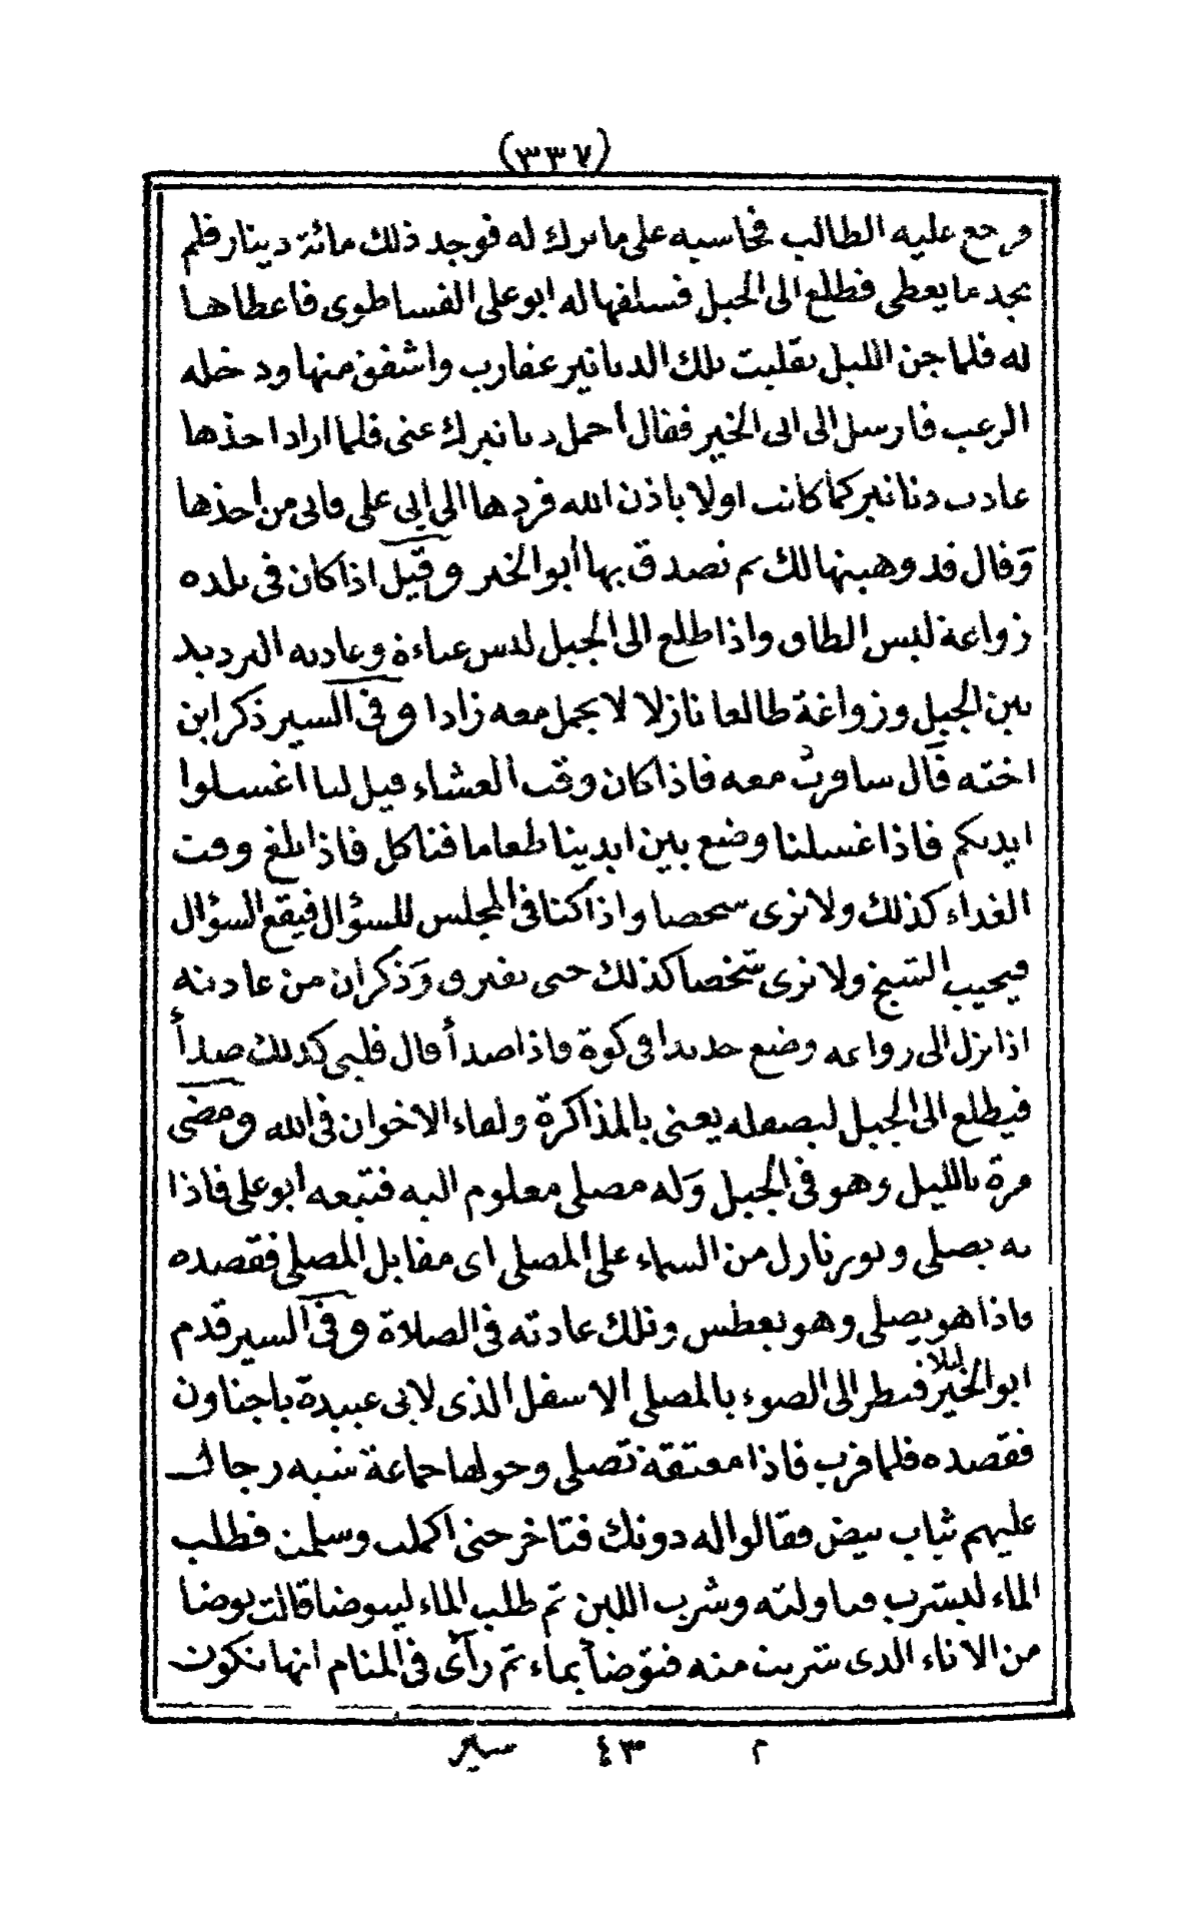 (٣٣٧)
ورجع عليه الطالب فحاسبه على ماترك له فوجد ذلك مائة دينار فلم
يجد ما يعطى فطلع الى الجبل فسلفها له ابو على الفساطوى فاعطاها
له فلما جن الليل تقلبت تلك الدنانير عقارب واشفق منها ودخله
الرعب فارسل الى ابى الخير فقال أحمل دنانيرك عنى فلما اراد اخذها
عادت دنانير كما كانت اولا باذن الله فردها الى ابى على فابى من اخذها
وقال قد وهبتها لك ثم تصدق بها أبو الخير وقيل اذا كان فى بلده
زواغة لبس الطاق واذا طلع الى الجبل لبس عباءة وعادته الترديد
بين الجبل وزواغة طالعا نازلا لا يحمل معه زادا وفى السير ذكر ابن
اخته قال سافرت معه فاذا كان وقت العشاء قيل لنا اغسلوا
ايديكم فاذا غسلنا وضع بين ايدينا طعاما فناكل فاذا بلغ وقت
الغداء كذلك ولا نرى شخصا واذا كنا فى المجلس للسؤال فيقع السؤال
فيجيب الشيخ ولا نرى شخصا كذلك حتى نفترق وذكر ان من عادته
اذا نزل الى زواغه وضع حديدا فى كوة فاذا صدأ قال قلبى كذلك صدأ
فيطلع الى الجبل ليصقله يعنى بالمذاكرة ولقاء الاخوان فى الله ومضى
مرة بالليل وهو فى الجبل وله مصلى معلوم اليه فتبعه ابو على فاذا
به يصلى ونور نازل من السماء على المصلى اى مقابل المصلى فقصده
فاذا هو يصلى وهو يعطس وتلك عادته فى الصلاة وفى السير قدم
ابو الخير ليلا فنظر الى الضوء بالمصلى الاسفل الذى لابى عبيدة باجناون
فقصده فلما قرب فاذا معتقة تصلى وحولها جماعة شبه رجال
عليهم ثياب بيض فقالوا له دونك فتاخر حتى اكملت وسلمت فطلب
الماء ليشرب فناولته وشرب اللبن ثم طلب الماء ليتوضا قالت توضا
من الاناء الذى شربت منه فتوضأ بماء ثم رأى فى المنام انها تكون
م ٤٣ سير